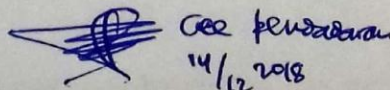 acc pendadaran
14/12 2018